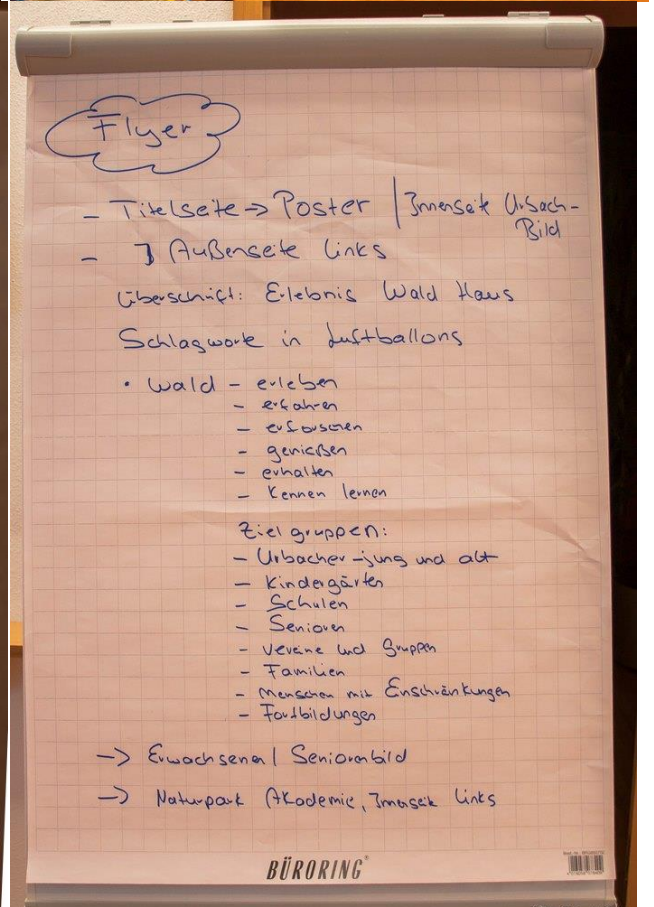 Flyer
- Titelseite -> Poster | Innenseite Urbach-
Bild
- Außenseite links
Überschrift: Erlebnis Wald Haus
Schlagworte in Luftballons
• Wald - erleben
- erfahren
- erforschen
- genießen
- erhalten
- Kennen lernen
Zielgruppen:
- Urbacher - jung und alt
- Kindergärten
- Schulen
- Senioren
- Vereine und Gruppen
- Familien
- Menschen mit Enschränkungen
- Fortbildungen
-> Erwachsenen / Seniorenbild
-> Naturpark Akademie, Innenseite links
BÜRORING